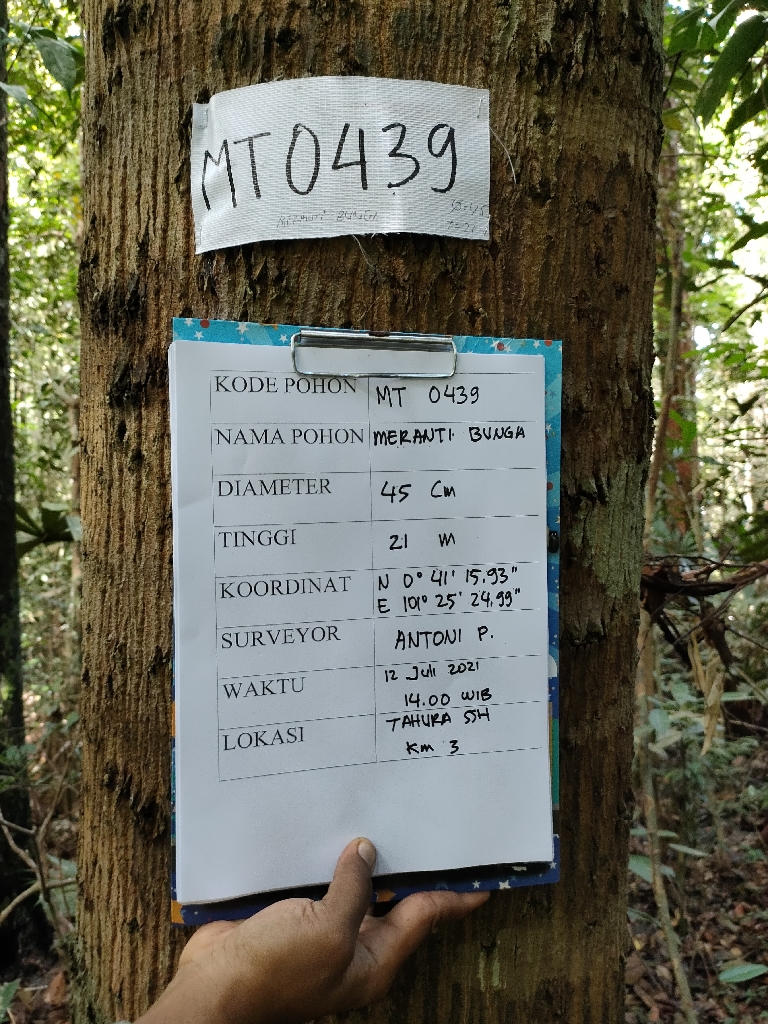 MT0439
MERANTI BUNGA
KODE POHON MT 0439
NAMA POHON MERANTI BUNGA
DIAMETER 45 Cm
TINGGI 21 m
KOORDINAT N 0° 41' 15,93"
E 101° 25' 24,99"
SURVEYOR ANTONI P.
WAKTU 12 Juli 2021
14.00 WIB
LOKASI TAHURA SSH
Km 3